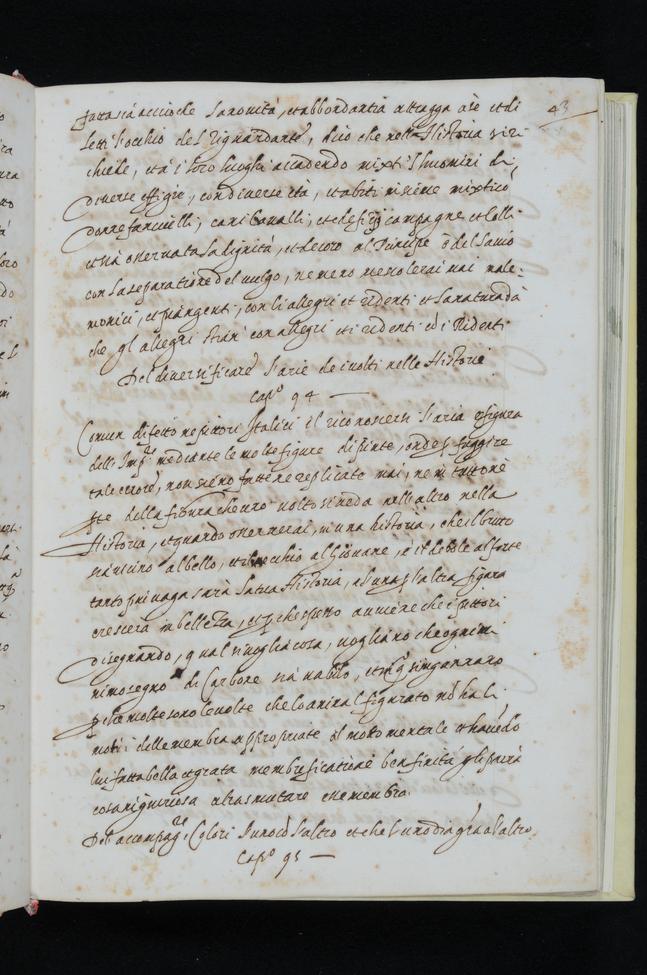 43
fatta sia acciò che la novità, et abbondantia attragga à se et di
letti l'occhio del riguardante, dico che nell'Historia si ri-
chiede, et à i loro luoghi accadendo misti gl'huomini di
diverse effigie, con diverse età, et abiti insieme misti co'
donne fanciulli, cani Cavalli, et edefitij campagne et colli
et sia osservata la dignità, et decoro al Principe ò del savio
con la separatione del vulgo, ne meno mescolerai mai male-
nonici, et piangenti, con li allegri et ridenti et la natura dà
che gl'allegri stian' con allegri et i ridenti cò i Ridenti
Del diversificare l'arie de i volti nelle Historie
Cap.º 94
Comun difetto ne pittori Italici è il riconoscersi l'aria e figura
dell'Imp.re mediante le molte figure dipinte, onde p fuggire
tale errore, non sieno fatte ne replicate mai, ne in tutto ne
pte della figura che uno volto si veda nell'altro nella
Historia, et quando osserverai, in una historia, che il bruto
sia vicino al bello, et il vecchio al Giovane, e il debole al forte
tanto più vaga sarà la tua Historia, et l'una p l'altra figura
crescerà in bellezza, et p che spesso avviene che i pittori
disegnando, qual si voglia cosa, vogliano che ogni mi-
nimo segno di Carbone sia valido, et in q.o s'ingannano
p che molte sono le volte che lo animal figurato nò ha li
moti delle membra appropriate al moto mentale et havedo
lui fatta bella et grata membrificatione ben finita gli parrà
cosa ingiuriosa à trasmutare esse membra.
Del accompag.re i Colori l'uno cò l'altro et che l'uno dia gra al altro.
Cap.º 95